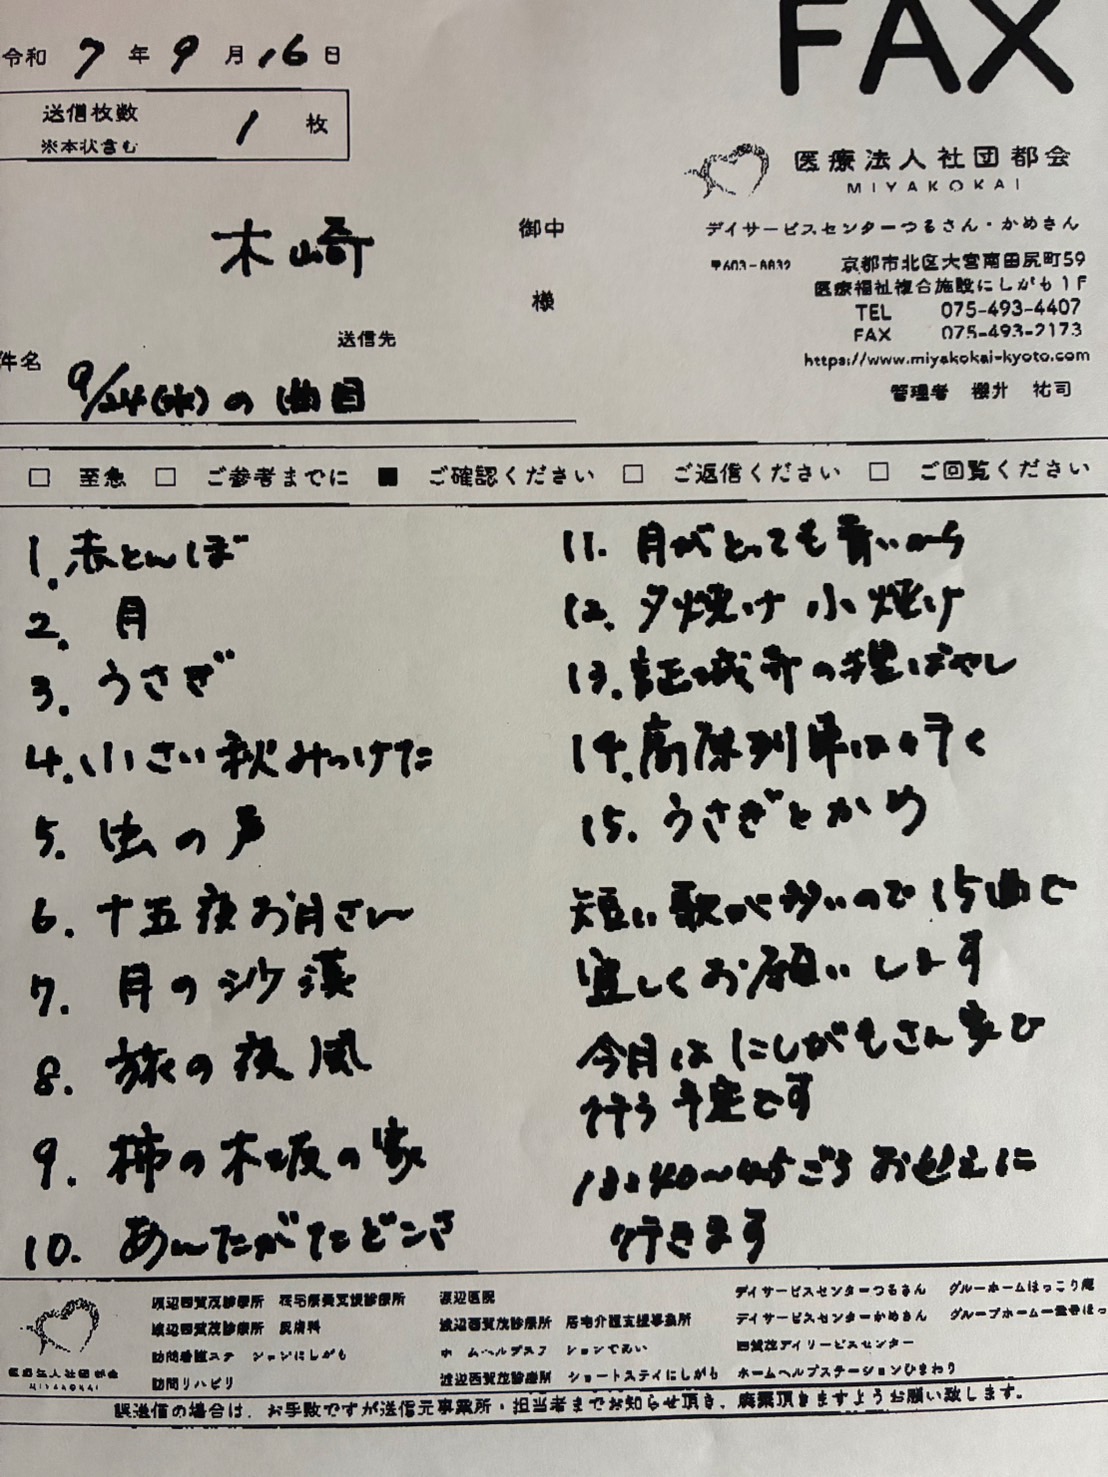 FAX
令和 7 年 9 月 16 日
送信枚数
※本状含む
1 枚
医療法人社団都会
MIYAKOKAI
木崎
御中
様
送信先
デイサービスセンターつるさん・かめさん
〒603-8832 京都市北区大宮南田尻町59
医療福祉複合施設にしがも1F
TEL 075-493-4407
FAX 075-493-2173
https://www.miyakokai-kyoto.com
管理者 櫻井 祐司
件名
9/24(水)の曲目
□ 至急 □ ご参考までに ■ ご確認ください □ ご返信ください □ ご回覧ください
1. 赤とんぼ
2. 月
3. うさぎ
4. 小さい秋みつけた
5. 虫の声
6. 十五夜お月さん
7. 月の沙漠
8. 旅の夜風
9. 柿の木坂の家
10. あんたがたどこさ
11. 月がとっても青いから
12. 夕焼け小焼け
13. 証城寺の狸ばやし
14. 高原列車は行く
15. うさぎとかめ
短い歌が多いので15曲で
宜しくお願いします
今月はにしがもさん
行う予定です
13:40〜45ごろお迎えに
行きます
医療法人社団都会
MIYAKOKAI
渡辺西賀茂診療所 在宅療養支援診療所
渡辺西賀茂診療所 皮膚科
訪問看護ステーションにしがも
訪問リハビリ
渡辺医院
渡辺西賀茂診療所 居宅介護支援事業所
ホームヘルプステーションであい
渡辺西賀茂診療所 ショートステイにしがも
デイサービスセンターつるさん グループホームほっこり庵
デイサービスセンターかめさん グループホーム一番
西賀茂デイサービスセンター
ホームヘルプステーションひまわり
誤送信の場合は、お手数ですが送信元事業所・担当者までお知らせ頂き、廃棄頂きますようお願い致します。